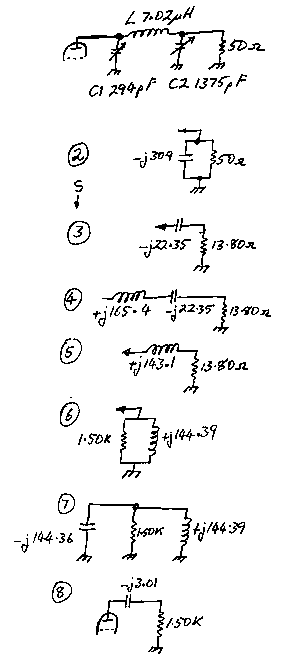 L 7.02µH
50Ω
C1 294pF C2 1375pF
②
-j309 50Ω
S
③
-j22.35 13.80Ω
④
+j165.4 -j22.35 13.80Ω
⑤
+j143.1 13.80Ω
⑥
1.50K +j144.39
⑦
-j144.36 1.50K +j144.39
⑧
-j3.01
1.50K